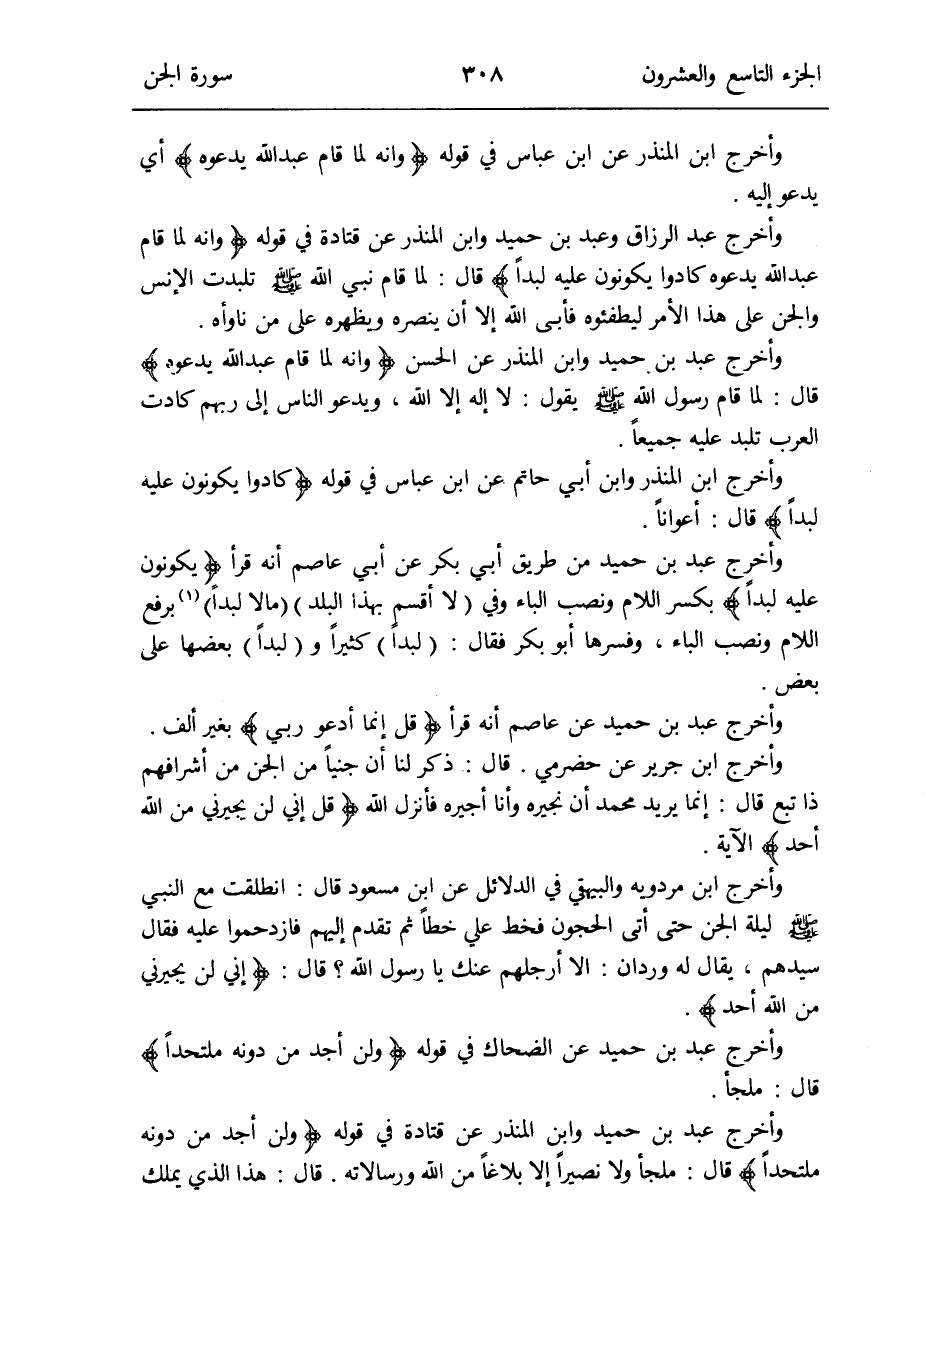 الجزء التاسع والعشرون ٣٠٨ سورة الجن
وأخرج ابن المنذر عن ابن عباس في قوله ﴿ وانه لما قام عبدالله يدعوه ﴾ أي
يدعو إليه .
وأخرج عبد الرزاق وعبد بن حميد وابن المنذر عن قتادة في قوله ﴿ وانه لما قام
عبدالله يدعوه كادوا يكونون عليه لبداً ﴾ قال : لما قام نبي الله ﷺ تلبدت الإنس
والجن على هذا الأمر ليطفئوه فأبى الله إلا أن ينصره ويظهره على من ناوأه .
وأخرج عبد بن حميد وابن المنذر عن الحسن ﴿ وانه لما قام عبدالله يدعوه ﴾
قال : لما قام رسول الله ﷺ يقول : لا إله إلا الله ، ويدعو الناس إلى ربهم كادت
العرب تلبد عليه جميعاً .
وأخرج ابن المنذر وابن أبي حاتم عن ابن عباس في قوله ﴿ كادوا يكونون عليه
لبداً ﴾ قال : أعواناً .
وأخرج عبد بن حميد من طريق أبي بكر عن أبي عاصم أنه قرأ ﴿ يكونون
عليه لبداً ﴾ بكسر اللام ونصب الباء وفي ( لا أقسم بهذا البلد ) (مالا لبداً)(١) برفع
اللام ونصب الباء ، وفسرها أبو بكر فقال : ( لبداً ) كثيراً و ( لبداً ) بعضها على
بعض .
وأخرج عبد بن حميد عن عاصم أنه قرأ ﴿ قل إنما أدعو ربي ﴾ بغير ألف .
وأخرج ابن جرير عن حضرمي . قال : ذكر لنا أن جنياً من الجن من أشرافهم
ذا تبع قال : إنما يريد محمد أن نجيره وأنا أجيره فأنزل الله ﴿ قل إني لن يجيرني من الله
أحد ﴾ الآية .
وأخرج ابن مردويه والبيهقي في الدلائل عن ابن مسعود قال : انطلقت مع النبي
ﷺ ليلة الجن حتى أتى الحجون فخط علي خطاً ثم تقدم إليهم فازدحموا عليه فقال
سيدهم ، يقال له وردان : الا أرجلهم عنك يا رسول الله ؟ قال : ﴿ إني لن يجيرني
من الله أحد ﴾ .
وأخرج عبد بن حميد عن الضحاك في قوله ﴿ ولن أجد من دونه ملتحداً ﴾
قال : ملجأ .
وأخرج عبد بن حميد وابن المنذر عن قتادة في قوله ﴿ ولن أجد من دونه
ملتحداً ﴾ قال : ملجأ ولا نصيراً إلا بلاغاً من الله ورسالاته . قال : هذا الذي يملك